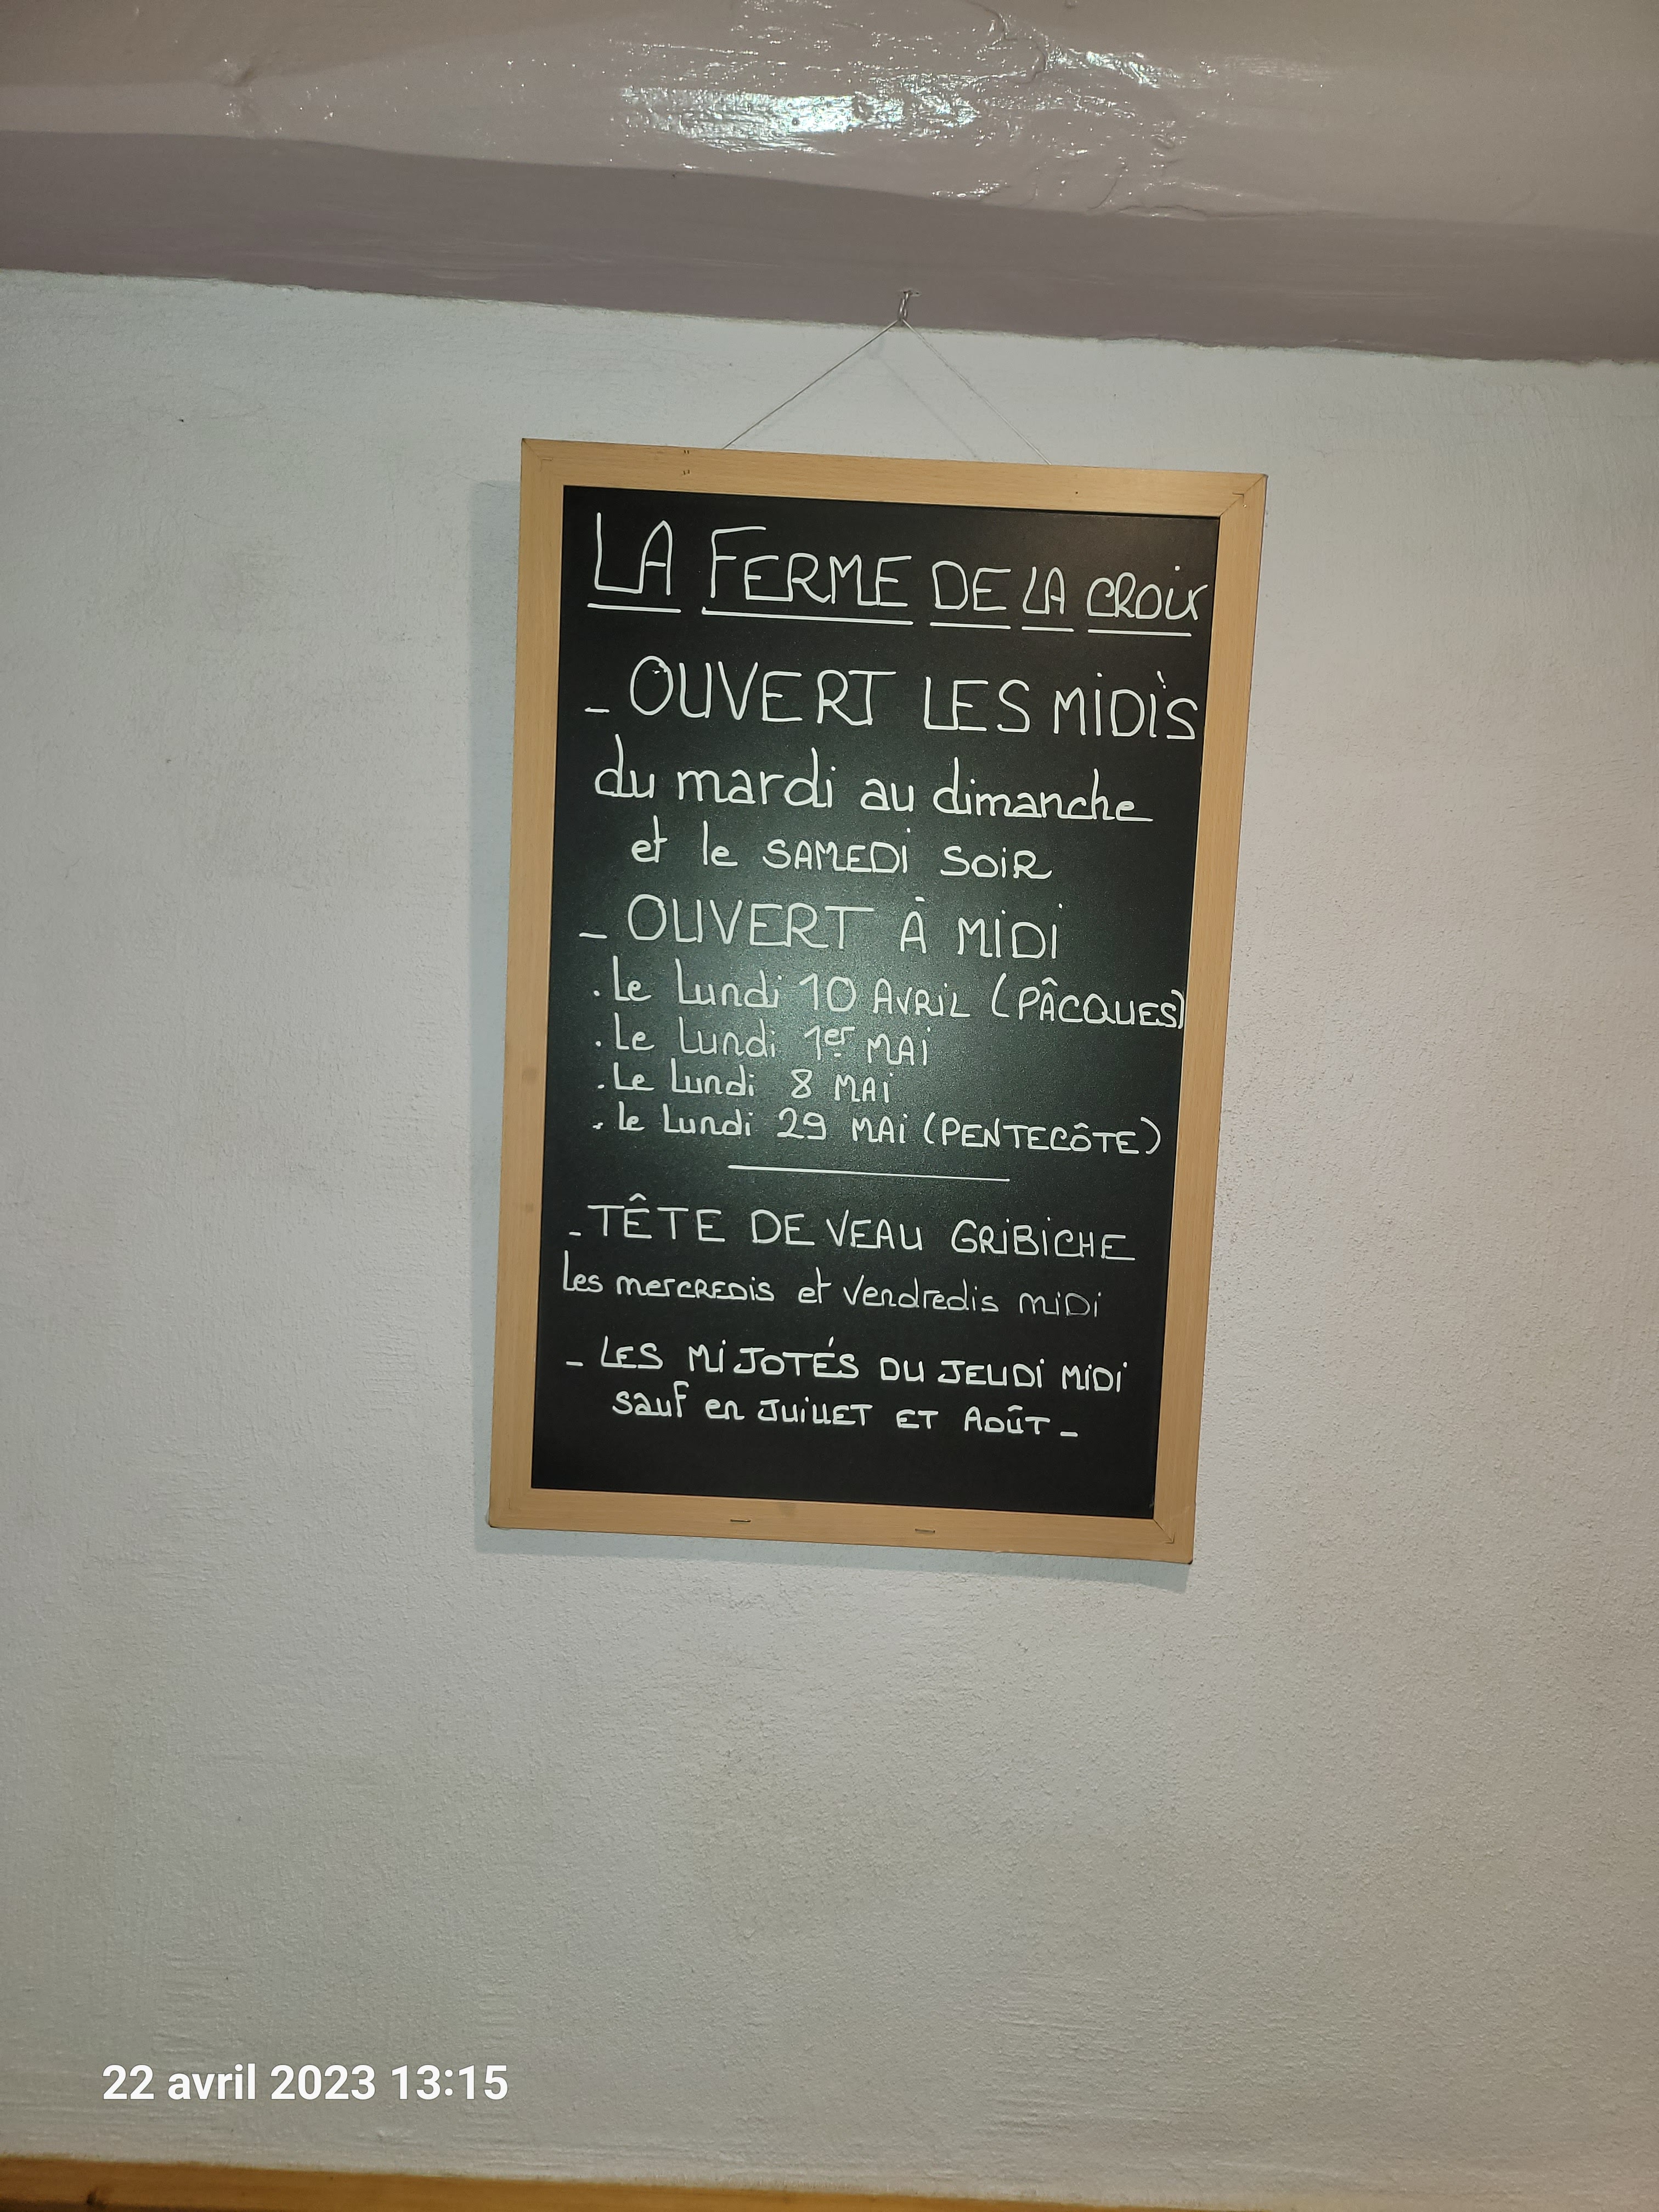 LA FERME DE LA CROIX
_ OUVERT LES MIDIS
du mardi au dimanche
et le SAMEDI SOIR
_ OUVERT À MIDI
. Le Lundi 10 AVRIL (PÂCQUES)
. Le Lundi 1er MAI
. Le Lundi 8 MAI
. le Lundi 29 MAI (PENTECÔTE)
_ TÊTE DE VEAU GRIBICHE
les mercredis et Vendredis midi
_ LES MIJOTÉS DU JEUDI MIDI
sauf en JUILLET ET AOÛT _
22 avril 2023 13:15